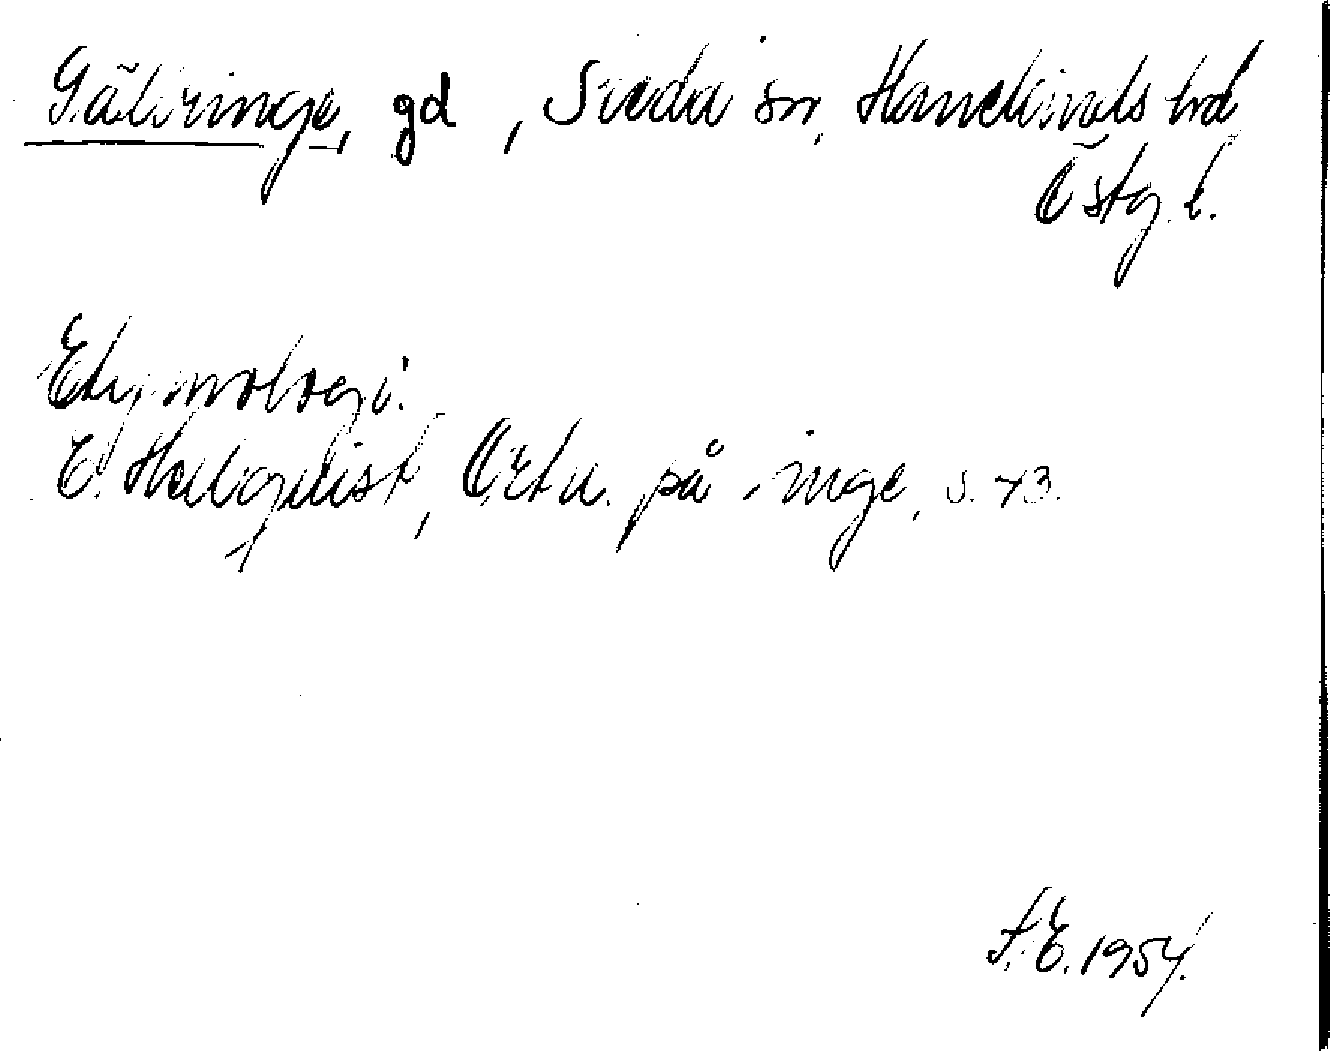 Gälvringe, gd, Sveda sn, Hanekinds hd
Östg. l.
Etymologi:
E. Hellquist, Ortn. på -inge, s. 43.
F. E. 1954.